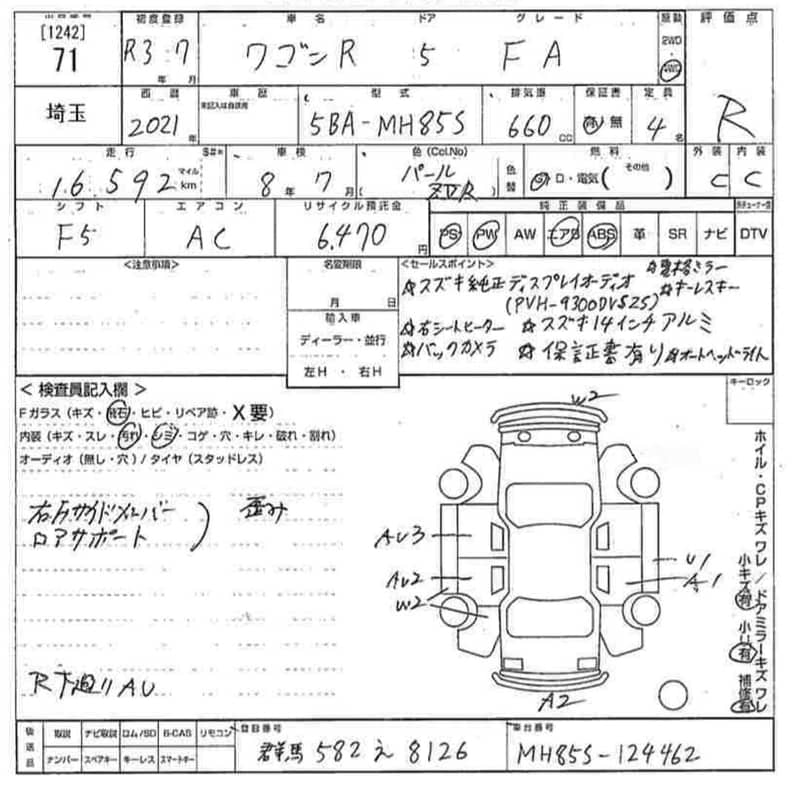 [1242]
71
初度登録
R3 7
年 月
車名
ワゴンR
ドア
5
グレード
FA
原動
2WD
評価点
R
埼玉
西暦
2021
年
車歴
未記入は自家用
型式
5BA-MH85S
排気量
660
CC
保証書
有 無
定員
4
名
走行
16,592
マイル
km
S#*
車検
8年 7月
色(Col.No)
パール
ZVR
色替
燃料
G ロ・電気( その他 )
外装
C
内装
C
シフト
F5
エアコン
AC
リサイクル預託金
6,470
円
純正装備品
PS PW AW エアB ABS 革 SR ナビ
DTV
<注意事項>
名変期限
月 日
輸入車
ディーラー・並行
左H ・ 右H
<セールスポイント> ☆電格ミラー
☆スズキ純正ディスプレイオーディオ ☆キーレスキー
(PVH-9300DVSZS)
☆右シートヒーター ☆スズキ14インチアルミ
☆バックカメラ ☆保証書有り ☆オートヘッドライト
< 検査員記入欄 >
Fガラス(キズ・飛石・ヒビ・リペア跡・X要)
内装(キズ・スレ・汚れ・シミ・コゲ・穴・キレ・破れ・割れ)
オーディオ(無し・穴)/タイヤ(スタッドレス)
右Fサイドメンバー
ロアサポート
) 歪み
R下廻りAU
W2
AU3
AU2
W2
U1
A1
A2
キーロック
ホイル・CPキズワレ/ドアミラーキズワレ
小キズ有 小U有 補修有
後送品
取説 ナビ取説 ロム/SD B-CAS リモコン
ナンバー スペアキー キーレス スマートキー
登録番号
群馬 582 え 8126
車台番号
MH85S-124462